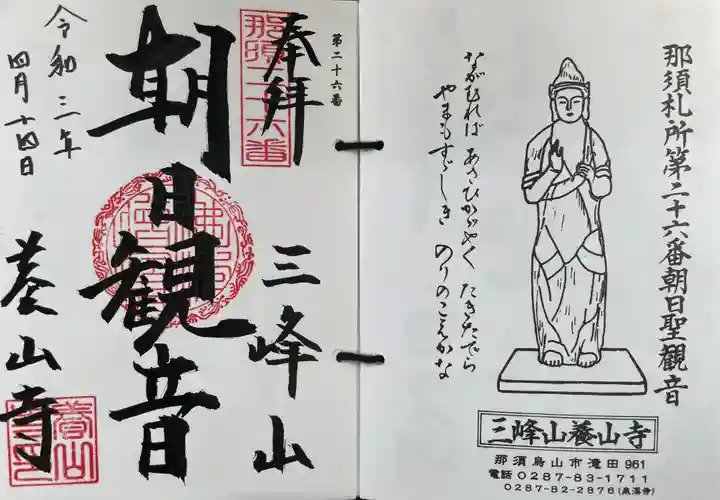 那須札所第二十六番朝日聖観音
ながむれば あさひかゞやく たきたでら
やまもすゞしき のりのこゑかな
三峰山養山寺
那須烏山市滝田961
電話 0287-83-1711
0287-82-2876(泉溪寺)
第二十六番
奉拝
那須二十六番
三峰山
朝日観音
令和三年
四月十四日
養山寺